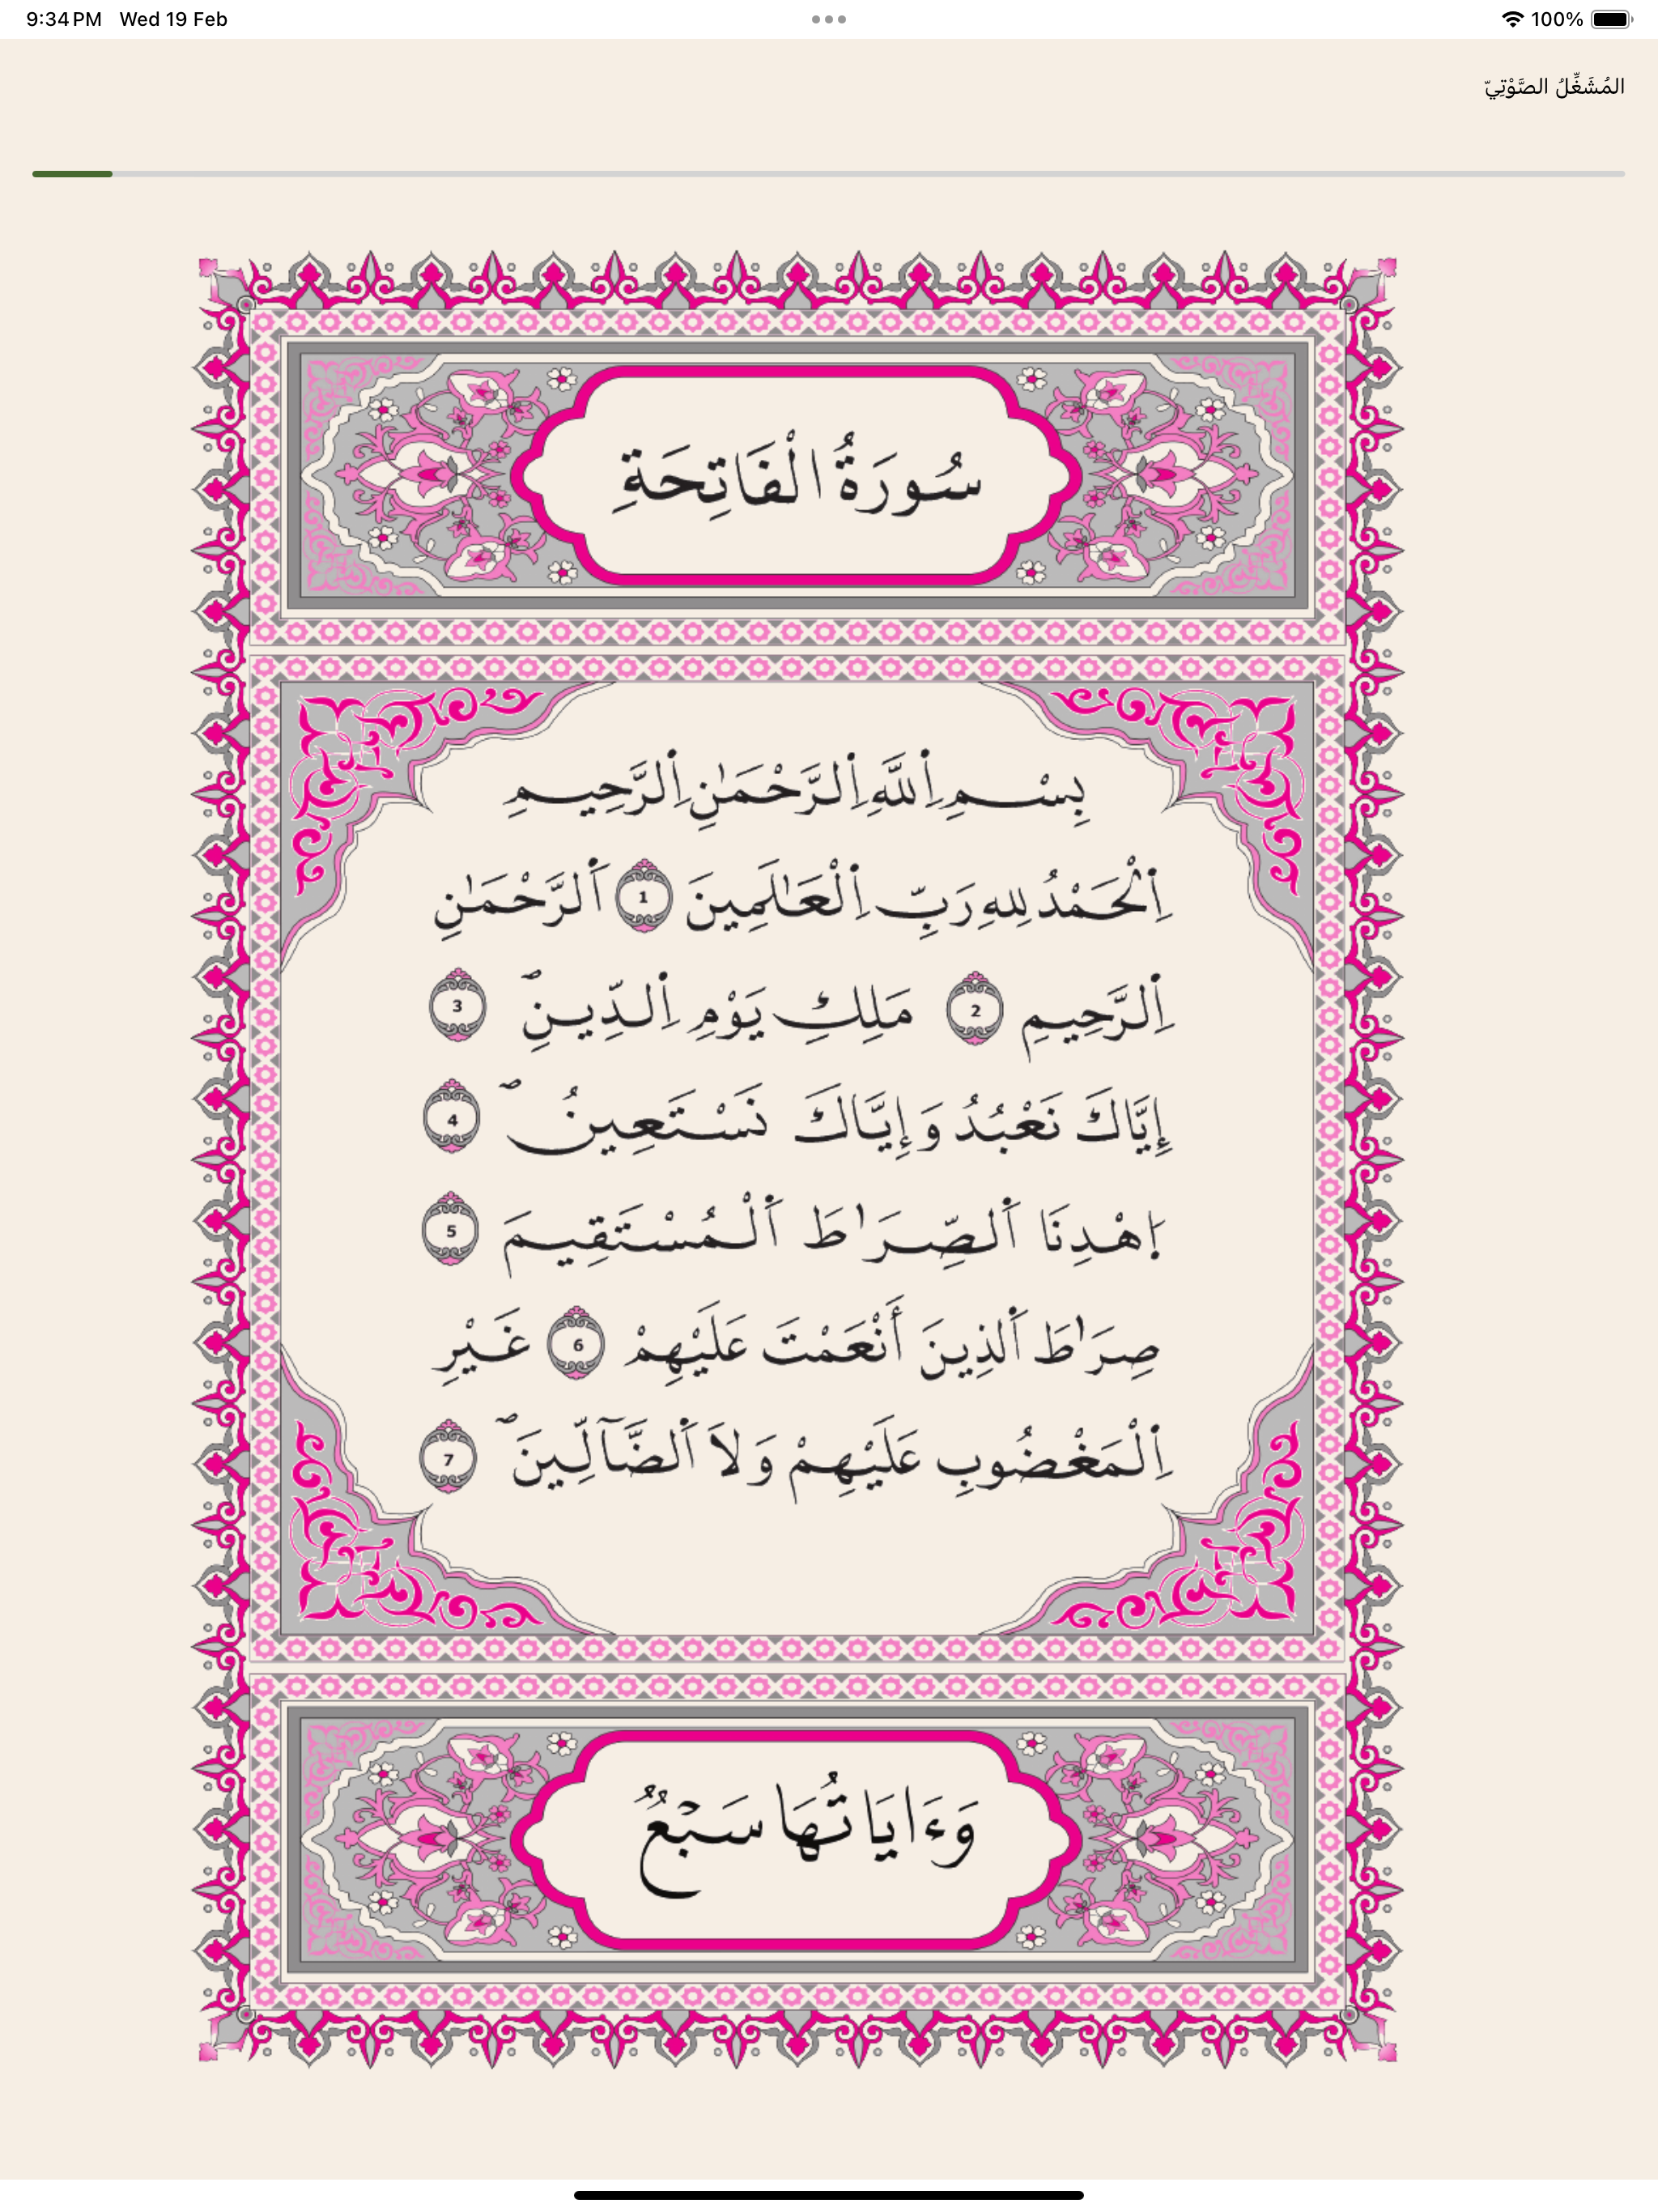 9:34 PM Wed 19 Feb 100%
المُشَغِّلُ الصَّوْتِيّ
سُورَةُ الْفَاتِحَةِ
بِسْمِ اِللَّهِ اِلرَّحْمَٰنِ اِلرَّحِيمِ
اِلْحَمْدُ لِلهِ رَبِّ اِلْعَٰلَمِينَ 1 اَلرَّحْمَٰنِ
اِلرَّحِيمِ 2 مَلِكِ يَوْمِ اِلدِّينِۖ 3
إِيَّاكَ نَعْبُدُ وَإِيَّاكَ نَسْتَعِينُۖ 4
اِهْدِنَا اَلصِّرَٰطَ اَلْمُسْتَقِيمَ 5
صِرَٰطَ اَلذِينَ أَنْعَمْتَ عَلَيْهِمْ 6 غَيْرِ
اِلْمَغْضُوبِ عَلَيْهِمْ وَلَا اَلضَّآلِّينَۖ 7
وَءَايَاتُهَا سَبْعٌ